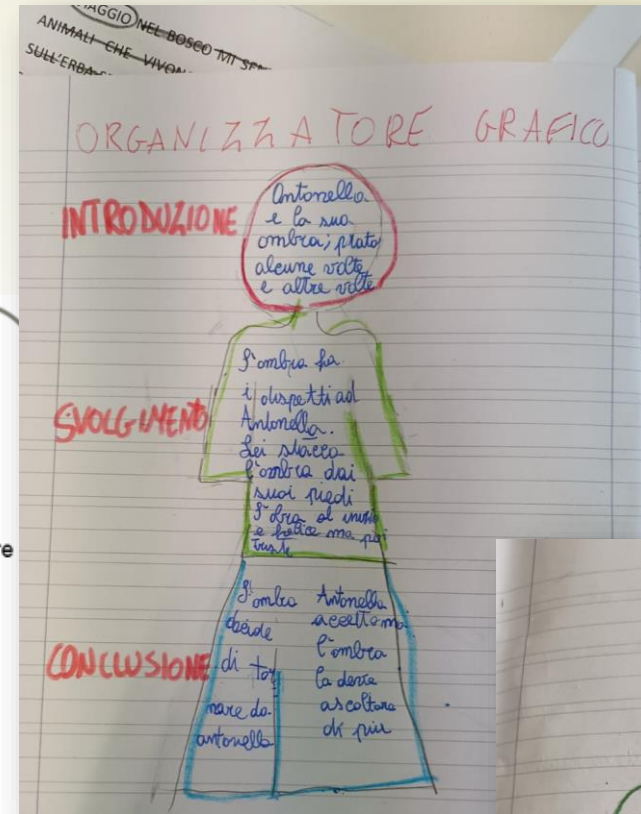 AGGIO NEL BOSCO MI
ANIMALI CHE VIVON
SULL'ERBA
re
ORGANIZZATORE GRAFICO
INTRODUZIONE
Antonella
e la sua
ombra; prato
alcune volte
e altre volte
SVOLGIMENTO
L'ombra fa
i dispetti ad
Antonella.
Lei stacca
l'ombra dai
suoi piedi
L'obra al inizio
e felice ma poi
triste
CONCLUSIONE
L'ombra
decide
di tor
nare da
antonella
Antonella
accetta ma
l'ombra
la deve
ascoltare
di più